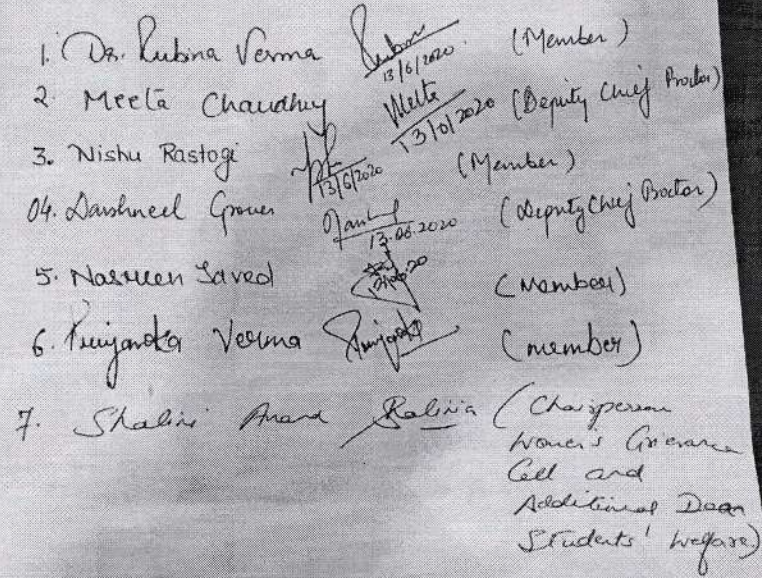 1. Dr. Rubina Verma 13/6/2020 (Member)
2. Meeta Chaudhry Meeta 13/6/2020 (Deputy Chief Proctor)
3. Nishu Rastogi 13/6/2020 (Member)
04. Darshneel Grover 13.06.2020 (Deputy Chief Proctor)
5. Nasreen Javed (Member)
6. Priyanka Verma Priyanka (member)
7. Shalini Anand Shalinia (Chairperson
Women's Grievance
Cell and
Additional Dean
Students' Welfare)